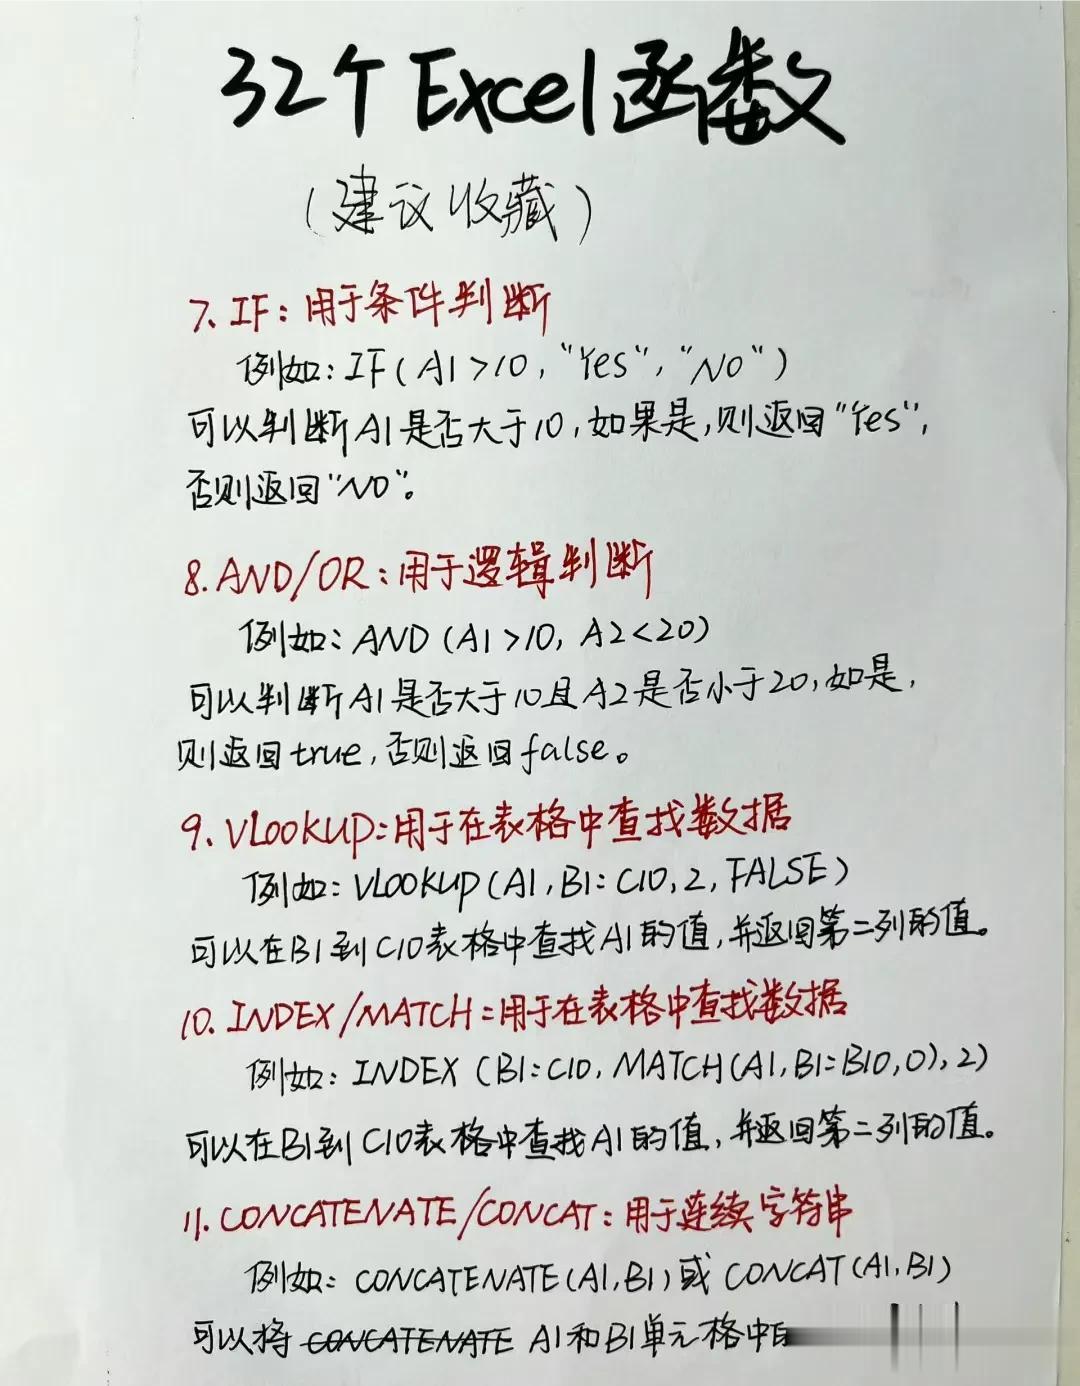 32个Excel函数
(建议收藏)
7、IF:用于条件判断
例如:IF(A1>10,"Yes","NO")
可以判断A1是否大于10,如果是,则返回"Yes",
否则返回"NO"。
8.AND/OR:用于逻辑判断
例如:AND(A1>10,A2<20)
可以判断A1是否大于10且A2是否小于20,如是,
则返回true,否则返回false。
9.VLOOKUP:用于在表格中查找数据
例如:VLOOKUP(A1,B1:C10,2,FALSE)
可以在B1到C10表格中查找A1的值,并返回第二列的值。
10.INDEX/MATCH:用于在表格中查找数据
例如:INDEX(B1:C10,MATCH(A1,B1:B10,0),2)
可以在B1到C10表格中查找A1的值,并返回第二列的值。
11.CONCATENATE/CONCAT:用于连续字符串
例如:CONCATENATE(A1,B1)或CONCAT(A1,B1)
可以将CONCATENATE A1和B1单元格中